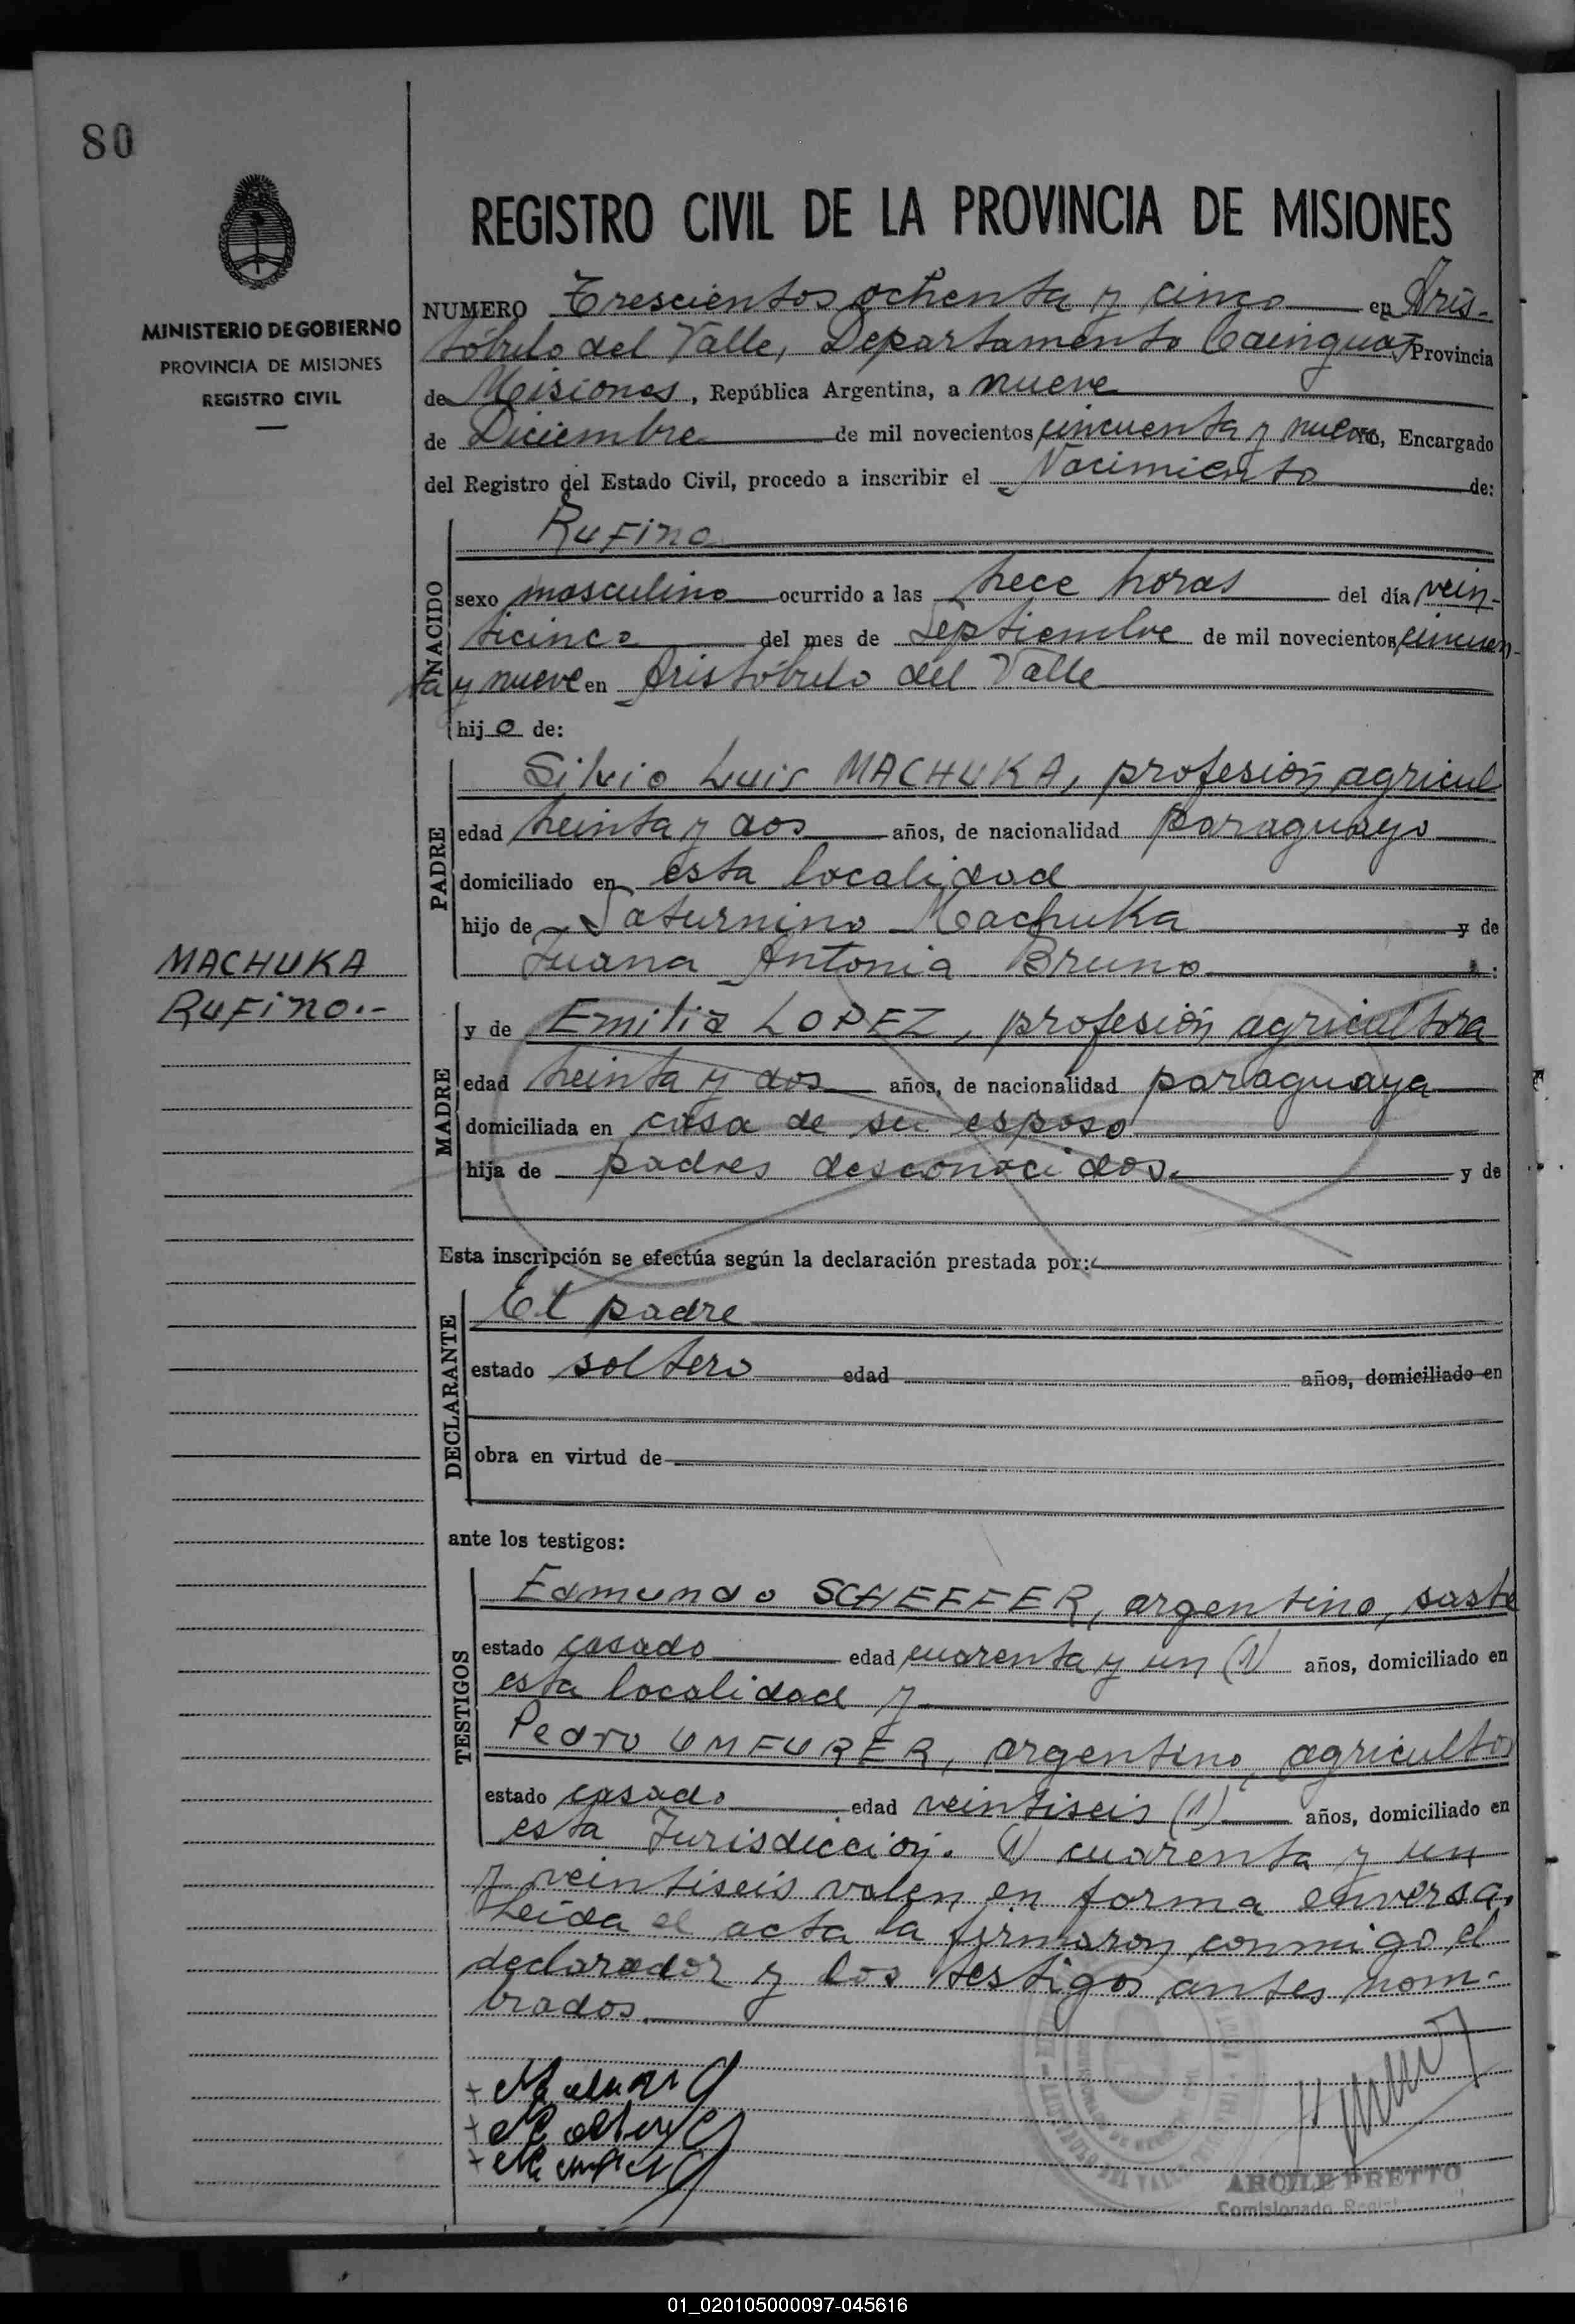 80
MINISTERIO DE GOBIERNO
PROVINCIA DE MISIONES
REGISTRO CIVIL
REGISTRO CIVIL DE LA PROVINCIA DE MISIONES
NUMERO Trescientos ochenta y cinco en Aris-
tóbulo del Valle, Departamento Cainguas Provincia
de Misiones, República Argentina, a nueve
de Diciembre de mil novecientos cincuenta y nueve, Encargado
del Registro del Estado Civil, procedo a inscribir el Nacimiento de:
NACIDO
Rufino
sexo masculino ocurrido a las trece horas del día vein-
ticinco del mes de Septiembre de mil novecientos cincuen-
ta y nueve en Aristóbulo del Valle
hijo de:
PADRE
Silvio Luis MACHUKA, profesión agricul
edad treinta y dos años, de nacionalidad paraguayo
domiciliado en esta localidad
hijo de Saturnino Machuka y de
Juana Antonia Bruno
MACHUKA
Rufino.-
MADRE
y de Emilia LOPEZ, profesión agricultora
edad treinta y dos años, de nacionalidad paraguaya
domiciliada en casa de su esposo
hija de padres desconocidos. y de
Esta inscripción se efectúa según la declaración prestada por:
DECLARANTE
El padre
estado soltero edad años, domiciliado en
obra en virtud de
ante los testigos:
TESTIGOS
Edmundo SCHEFFER, argentino, sastre
estado casado edad cuarenta y un (1) años, domiciliado en
esta localidad y
Pedro UMFURER, argentino, agricultor
estado casado edad veintiseis (1) años, domiciliado en
esta Jurisdicción. (1) cuarenta y un
y veintiseis valen en forma enversa.
Leida el acta la firmaron conmigo el
declarador y los testigos antes nom-
brados.
ARCILE PRETTO
Comisionado Regist
01_020105000097-045616